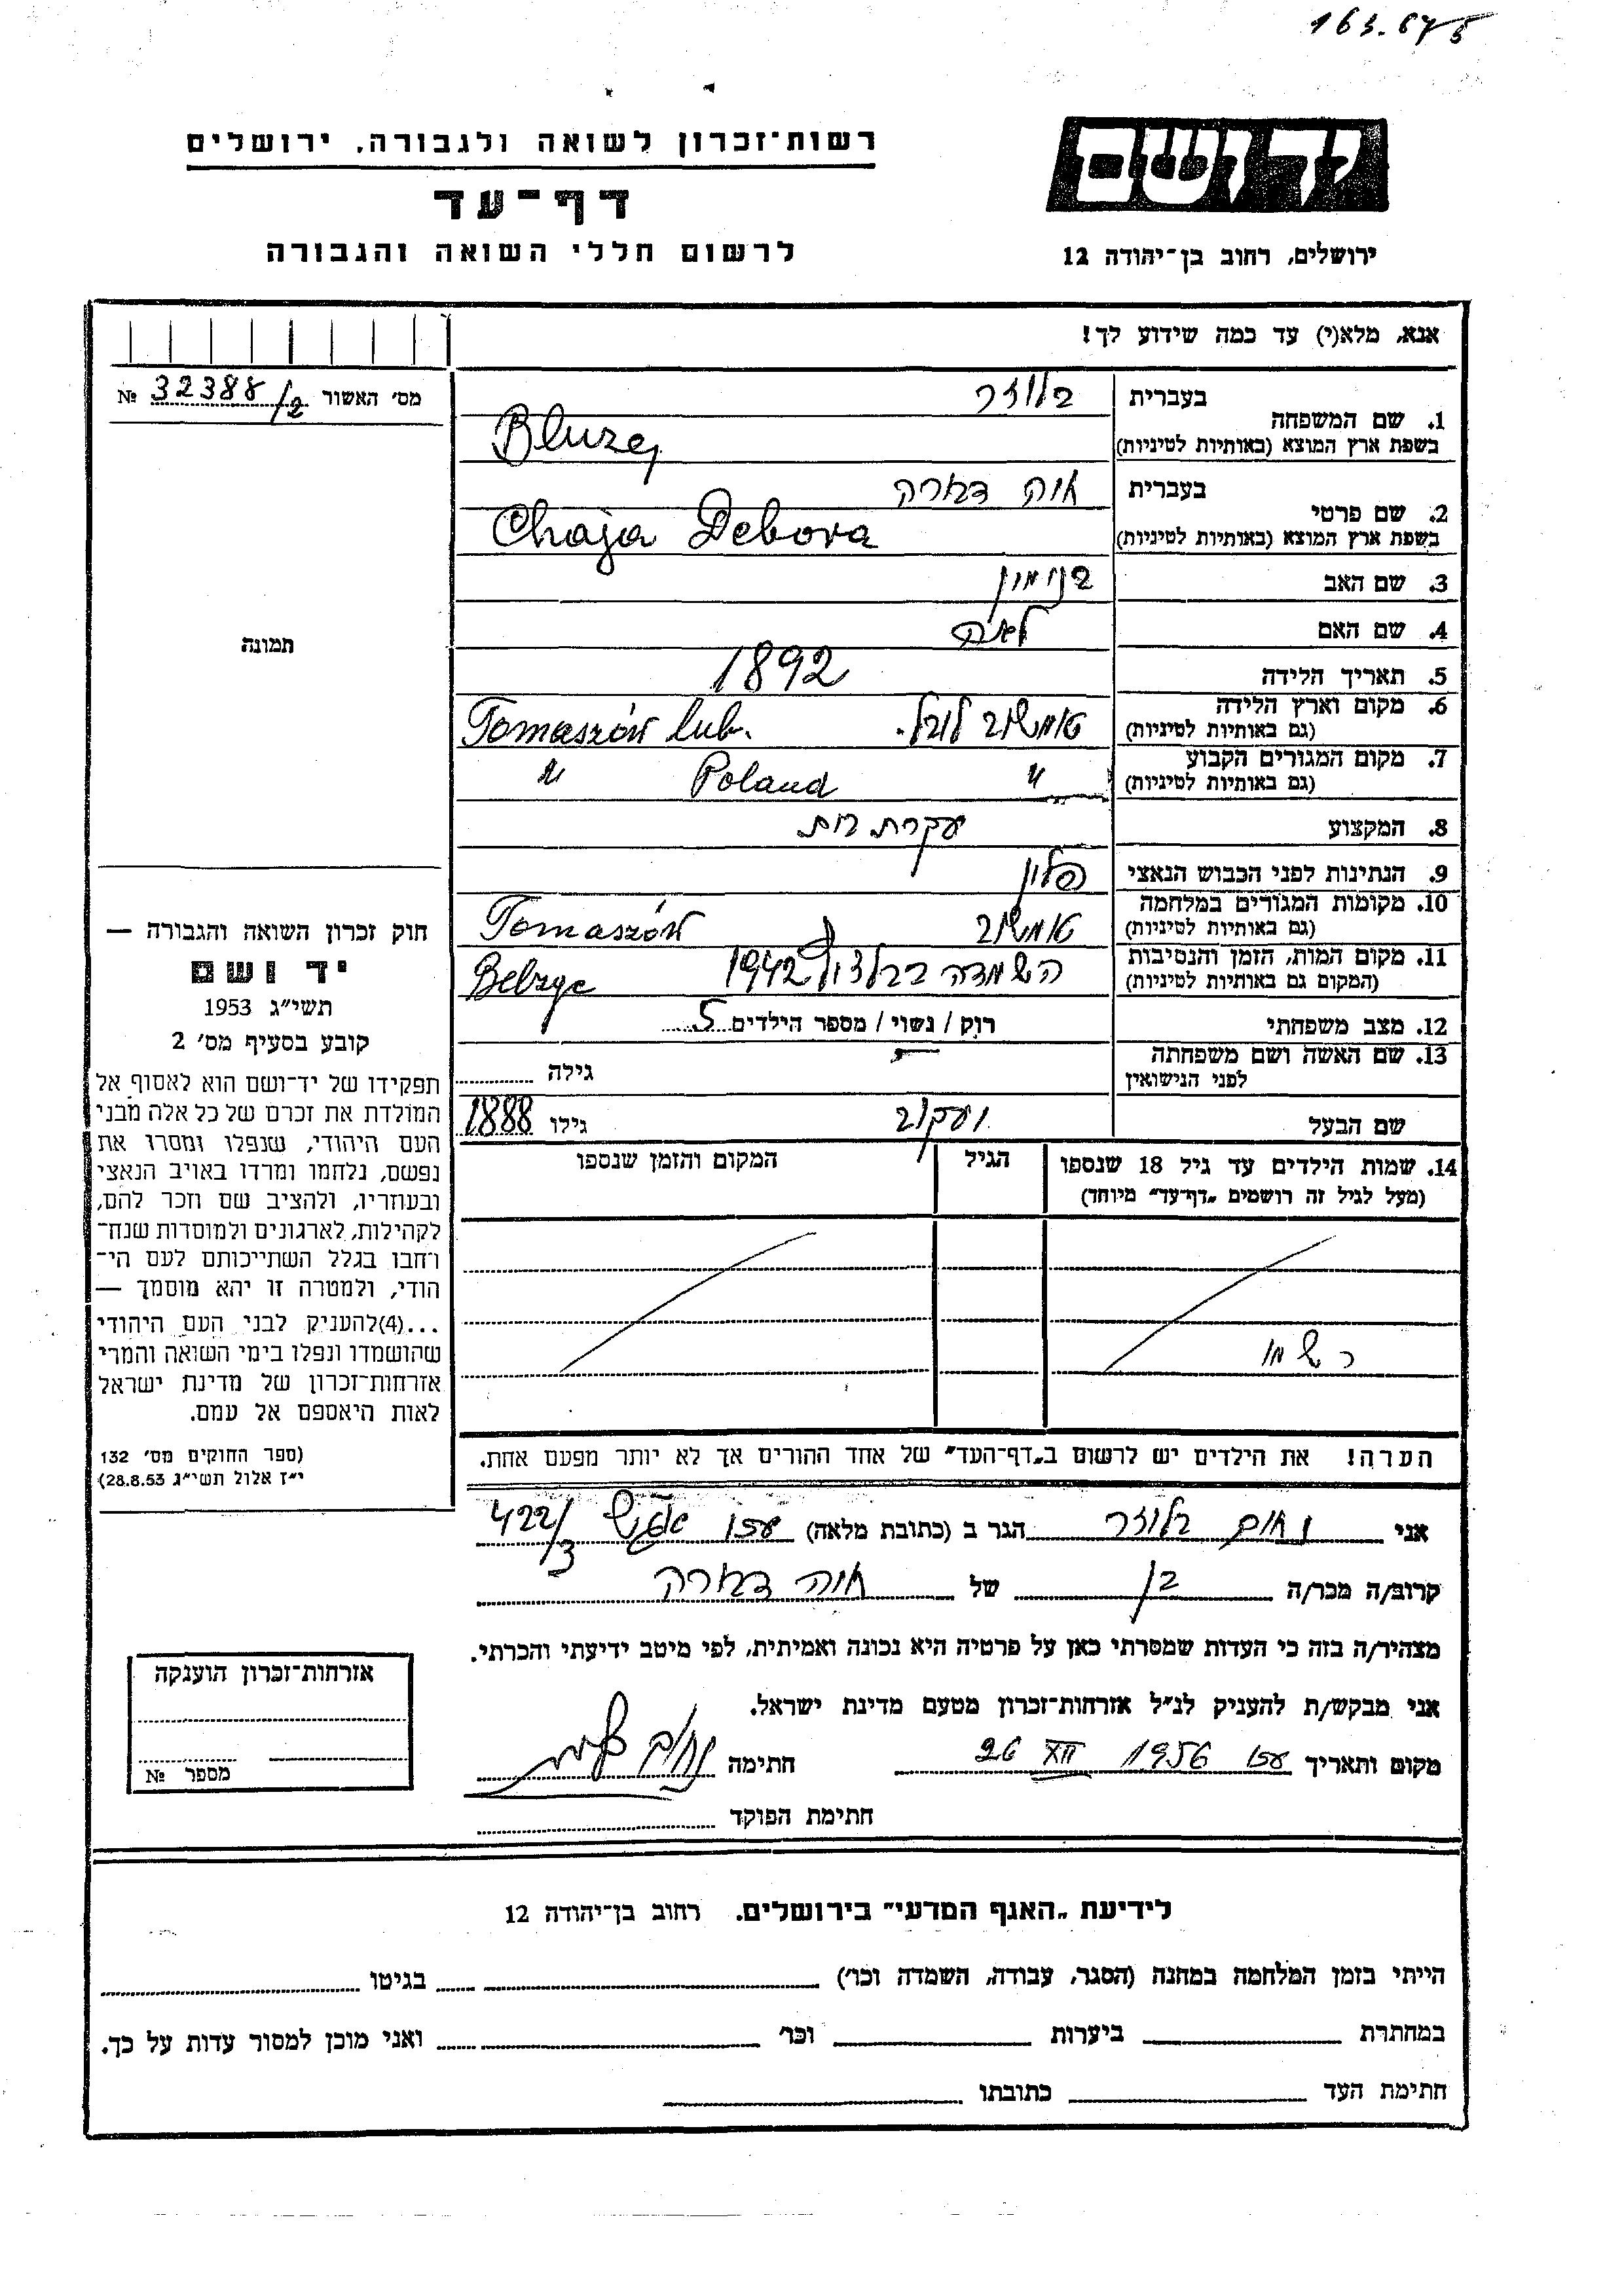 163.675
רשות־זכרון לשואה ולגבורה, ירושלים
דף־עד
לרשום חללי השואה והגבורה
יד ושם
ירושלים, רחוב בן־יהודה 12
אנא, מלא(י) עד כמה שידוע לך!
מס׳ האשור 32388/2 №
תמונה
1. שם המשפחה בעברית בלוזר
בשפת ארץ המוצא (באותיות לטיניות) Bluzer
2. שם פרטי בעברית חיה דבורה
בשפת ארץ המוצא (באותיות לטיניות) Chaja Debora
3. שם האב בנימין
4. שם האם לאה
5. תאריך הלידה 1892
6. מקום וארץ הלידה טומשוב לובל. Tomaszów lub.
(גם באותיות לטיניות)
7. מקום המגורים הקבוע " Poland "
(גם באותיות לטיניות)
8. המקצוע עקרת בית
9. הנתינות לפני הכבוש הנאצי פולין
10. מקומות המגורים במלחמה טומשוב Tomaszów
(גם באותיות לטיניות)
11. מקום המות, הזמן והנסיבות השמדה בבלזץ 1942 Belzyc
(המקום גם באותיות לטיניות)
12. מצב משפחתי רוק / נשוי / מספר הילדים 5
13. שם האשה ושם משפחתה
לפני הנישואין גילה
שם הבעל יעקב גילו 1888
14. שמות הילדים עד גיל 18 שנספו הגיל המקום והזמן שנספו
(מעל לגיל זה רושמים „דף־עד״ מיוחד)
רשמו
הערה! את הילדים יש לרשום ב„דף־העד״ של אחד ההורים אך לא יותר מפעם אחת.
חוק זכרון השואה והגבורה —
יד ושם
תשי״ג 1953
קובע בסעיף מס׳ 2
תפקידו של יד־ושם הוא לאסוף אל
המולדת את זכרם של כל אלה מבני
העם היהודי, שנפלו ומסרו את
נפשם, נלחמו ומרדו באויב הנאצי
ובעוזריו, ולהציב שם וזכר להם,
לקהילות, לארגונים ולמוסדות שנח־
רחבו בגלל השתייכותם לעם הי־
הודי, ולמטרה זו יהא מוסמך —
...(4)להעניק לבני העם היהודי
שהושמדו ונפלו בימי השואה והמרי
אזרחות־זכרון של מדינת ישראל
לאות היאספם אל עמם.
(ספר החוקים מס׳ 132
י״ז אלול תשי״ג 28.8.53)
אני נחום בלוזר הגר ב (כתובת מלאה) עכו 422/3
קרוב/ה מכר/ה בן של חיה דבורה
מצהיר/ה בזה כי העדות שמסרתי כאן על פרטיה היא נכונה ואמיתית, לפי מיטב ידיעתי והכרתי.
אני מבקש/ת להעניק לנ״ל אזרחות־זכרון מטעם מדינת ישראל.
מקום ותאריך עכו 1956 XII 26 חתימה נחום
חתימת הפוקד
אזרחות־זכרון הוענקה
מספר №
לידיעת „האגף המדעי״ בירושלים. רחוב בן־יהודה 12
הייתי בזמן המלחמה במחנה (הסגר, עבודה, השמדה וכו׳) בגיטו
במחתרת ביערות וכו׳ ואני מוכן למסור עדות על כך.
חתימת העד כתובתו